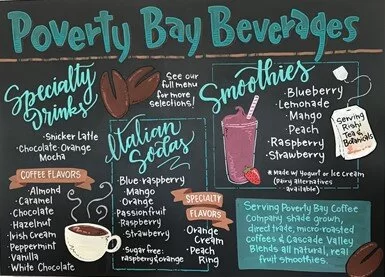 Poverty Bay Beverages
Specialty
Drinks
·Snicker Latte
·Chocolate·Orange
Mocha
COFFEE FLAVORS
·Almond
·Caramel
·Chocolate
·Hazelnut
·Irish Cream
·Peppermint
·Vanilla
·White Chocolate
See our
full menu
for more
selections!
Italian
Sodas
·Blue·raspberry
·Mango
·Orange
·Passionfruit
·Raspberry
·Strawberry
·Sugar free:
raspberry&orange
SPECIALTY
FLAVORS
·Orange
Cream
·Peach
Ring
Smoothies
·Blueberry
·Lemonade
·Mango
·Peach
·Raspberry
·Strawberry
* Made w/ Yogurt or Ice Cream
(Dairy alternatives
available)
Serving
Rishi
Tea &
Botanicals
Serving Poverty Bay Coffee
Company, shade grown,
direct trade, micro-roasted
coffees & Cascade Valley
Blends all natural, real
fruit smoothies.